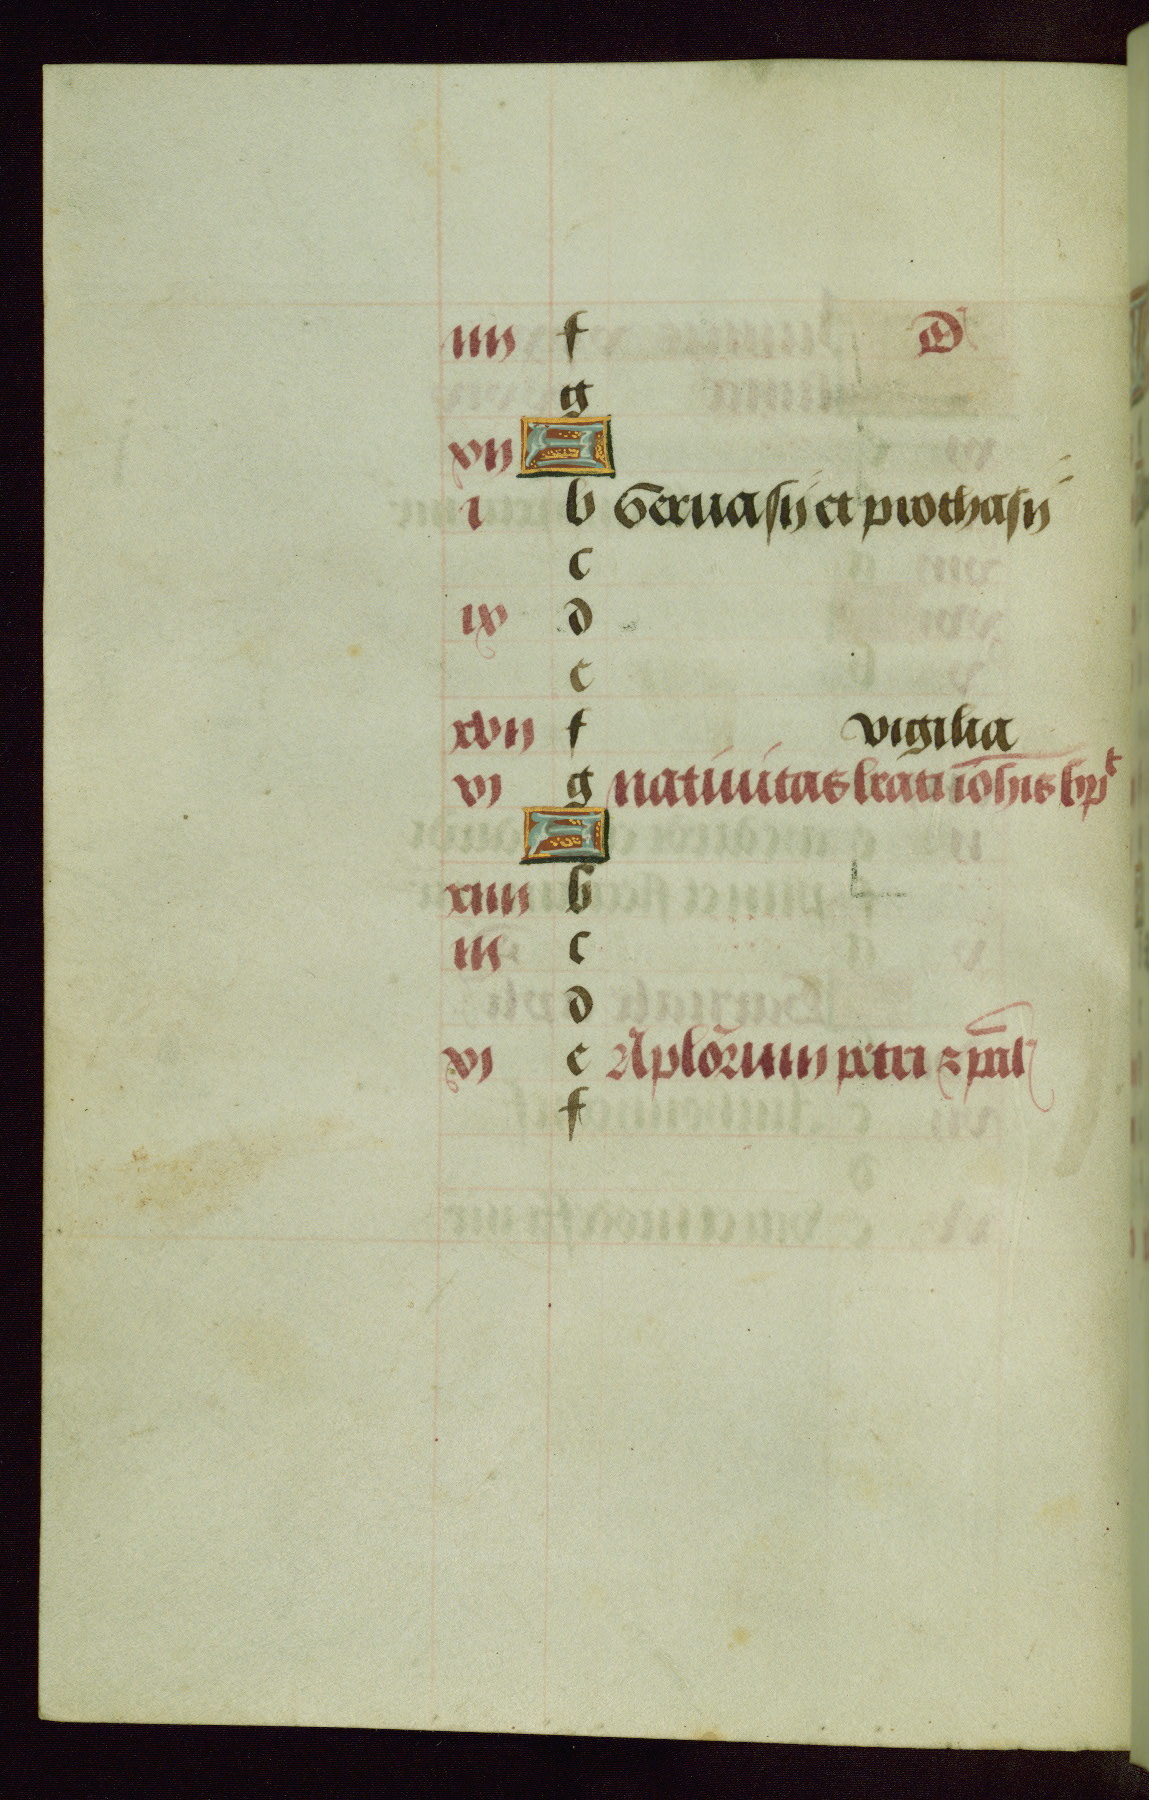 iiij f D
g
vij A
i b Geruasij et prothasij
c
ix d
e
xvij f vigilia
vi g natiuitas beati iohis bpt
A
xiiij b
iij c
d
xi e Aplōrum petri z pauli
f